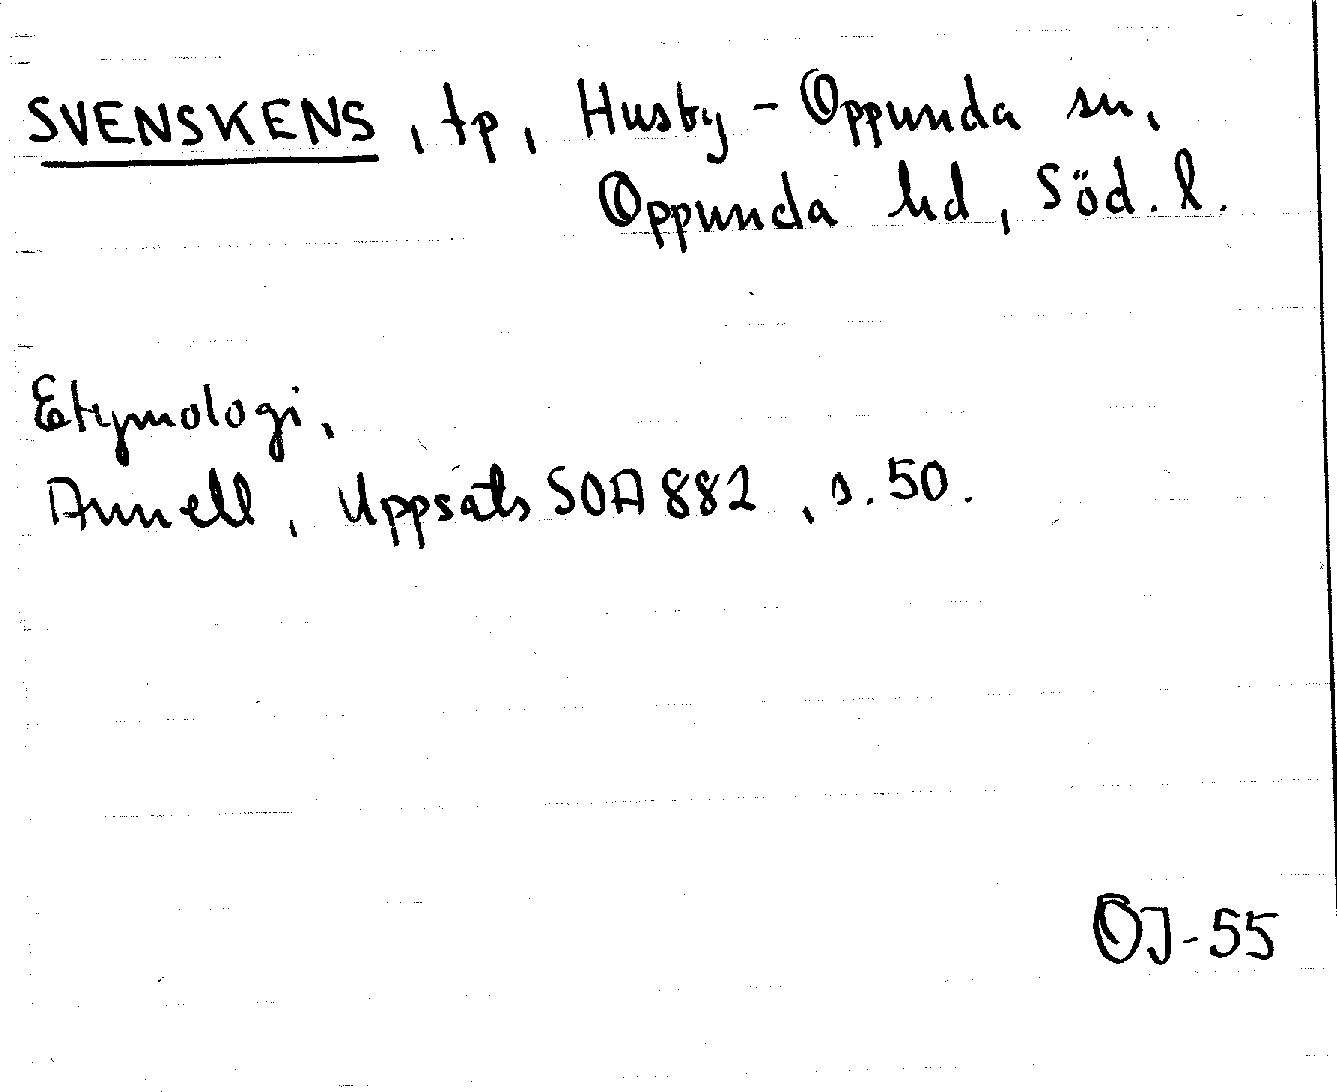 SVENSKENS, tp, Husby-Oppunda sn,
Oppunda hd, Söd. l.
Etymologi,
Annell, Uppsats SOA 882, s. 50.
OJ-55